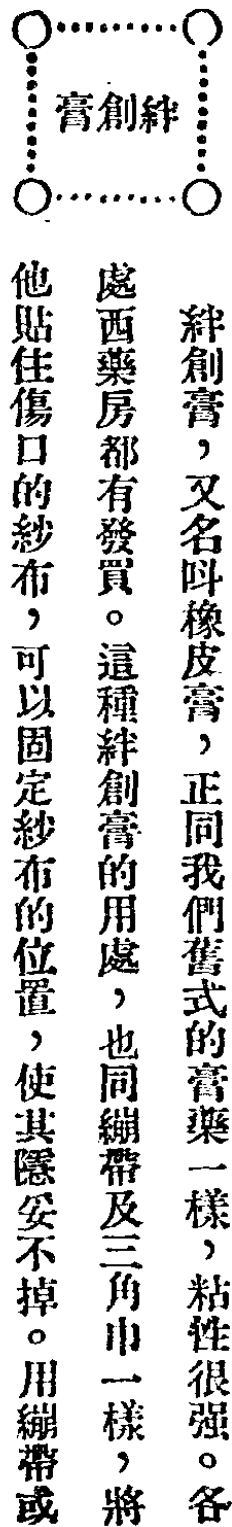 絆創膏
絆創膏，又名叫橡皮膏，正同我們舊式的膏藥一樣，粘性很强。各
處西藥房都有發買。這種絆創膏的用處，也同繃帶及三角巾一樣，將
他貼住傷口的紗布，可以固定紗布的位置，使其隱妥不掉。用繃帶或